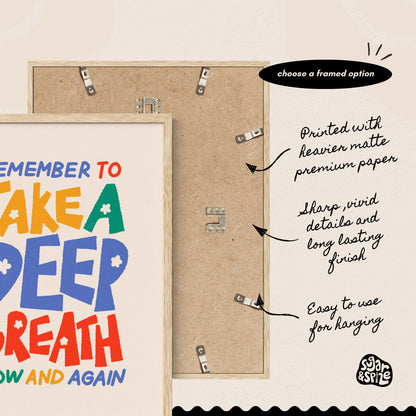 choose a framed option
EMEMBER TO
TAKE A
DEEP
BREATH
OW AND AGAIN
Printed with
heavier matte
premium paper
Sharp ,vivid
details and
long lasting
finish
Easy to use
for hanging
sugar
&SPIZE